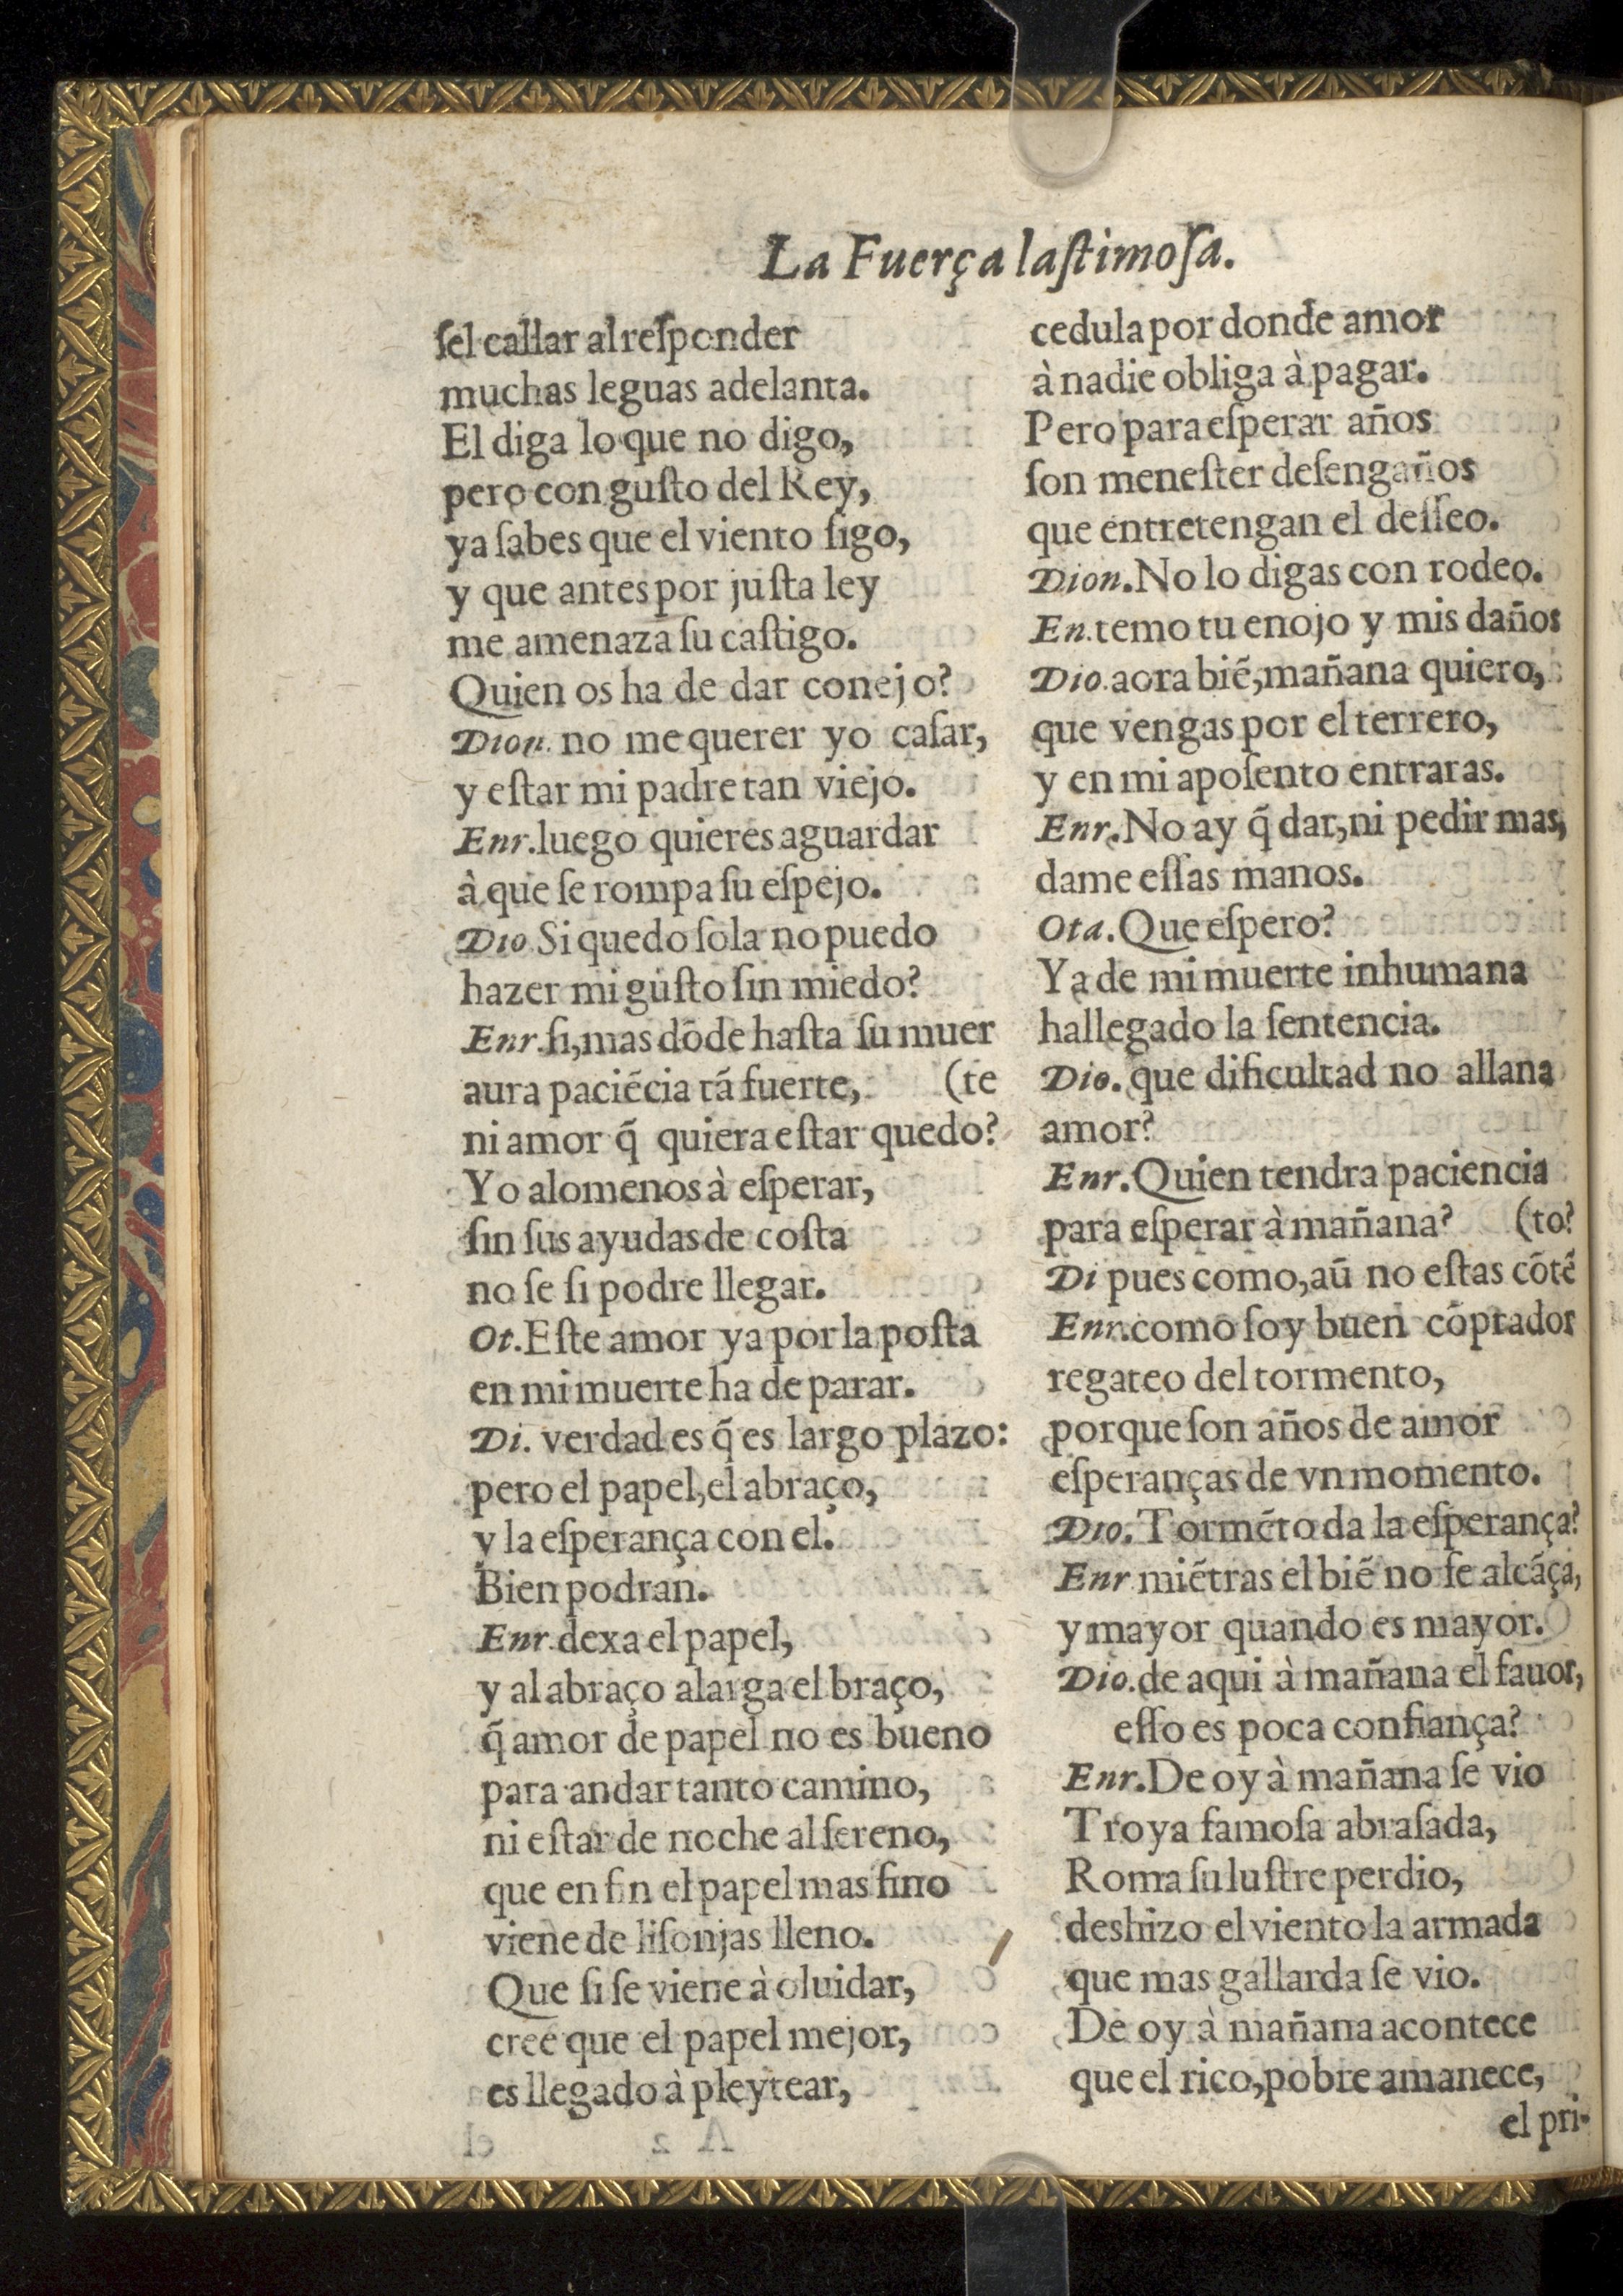 La Fuerça laſtimoſa.
ſel callar al reſponder
muchas leguas adelanta.
El diga lo que no digo,
pero con guſto del Rey,
ya ſabes que el viento ſigo,
y que antes por juſta ley
me amenaza ſu caſtigo.
Quien os ha de dar conejo?
Dion. no me querer yo caſar,
y eſtar mi padre tan viejo.
Enr. luego quieres aguardar
à que ſe rompa ſu eſpejo.
Dio. Si quedo ſola no puedo
hazer mi guſto ſin miedo?
Enr. ſi, mas dõde haſta ſu muer
aura paciẽcia tã fuerte, (te
ni amor q̃ quiera eſtar quedo?
Yo alomenos à eſperar,
ſin ſus ayudas de coſta
no ſe ſi podre llegar.
Ot. Eſte amor ya por la poſta
en mi muerte ha de parar.
Di. verdad es q̃ es largo plazo:
pero el papel, el abraço,
y la eſperança con el.
Bien podran.
Enr. dexa el papel,
y al abraço alarga el braço,
q̃ amor de papel no es bueno
para andar tanto camino,
ni eſtar de noche al ſereno,
que en fin el papel mas fino
viene de liſonjas lleno.
Que ſi ſe viene à oluidar,
cree que el papel mejor,
es llegado à pleytear,
cedula por donde amor
à nadie obliga à pagar.
Pero para eſperar años
ſon meneſter deſengaños
que entretengan el deſſeo.
Dion. No lo digas con rodeo.
En. temo tu enojo y mis daños
Dio. aora biẽ, mañana quiero,
que vengas por el terrero,
y en mi apoſento entraras.
Enr. No ay q̃ dar, ni pedir mas,
dame eſſas manos.
Ota. Que eſpero?
Ya de mi muerte inhumana
ha llegado la ſentencia.
Dio. que dificultad no allana
amor?
Enr. Quien tendra paciencia
para eſperar à mañana? (to?
Di pues como, aũ no eſtas cõtẽ
Enr. como ſoy buen cõprador
regateo del tormento,
porque ſon años de amor
eſperanças de vn momento.
Dio. Tormẽto da la eſperança?
Enr miẽtras el biẽ no ſe alcãça,
y mayor quando es mayor.
Dio. de aqui à mañana el fauor,
eſſo es poca confiança?
Enr. De oy à mañana ſe vio
Troya famoſa abraſada,
Roma ſu luſtre perdio,
deshizo el viento la armada
que mas gallarda ſe vio.
De oy à mañana acontece
que el rico, pobre amanece,
el pri-